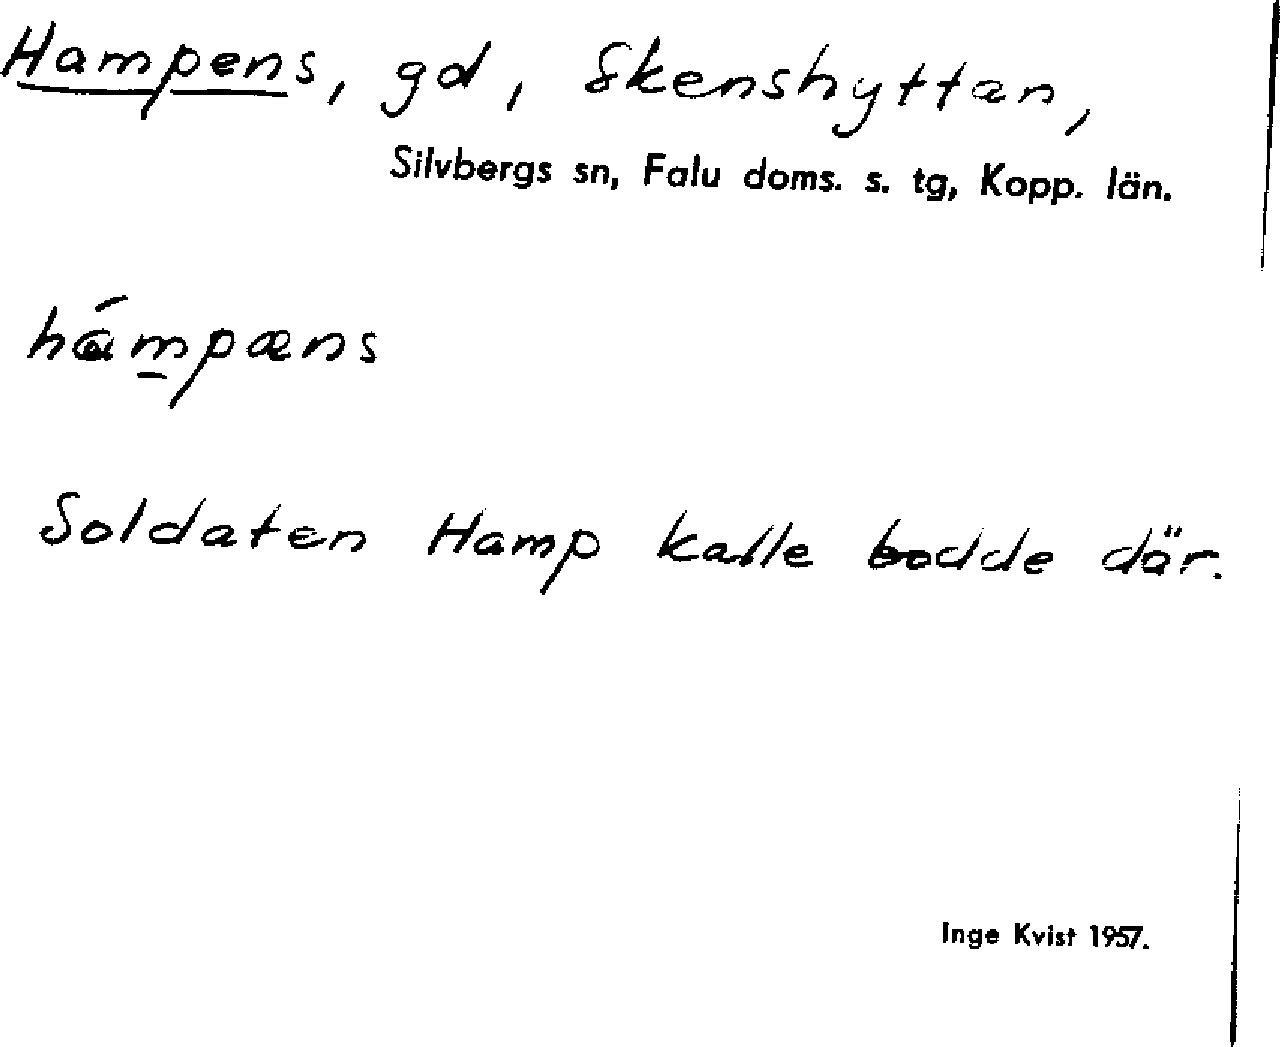 Hampens, gd, Skenshyttan,
Silvbergs sn, Falu doms. s. tg, Kopp. län.
hámpæns
Soldaten Hamp kalle bodde där.
Inge Kvist 1957.